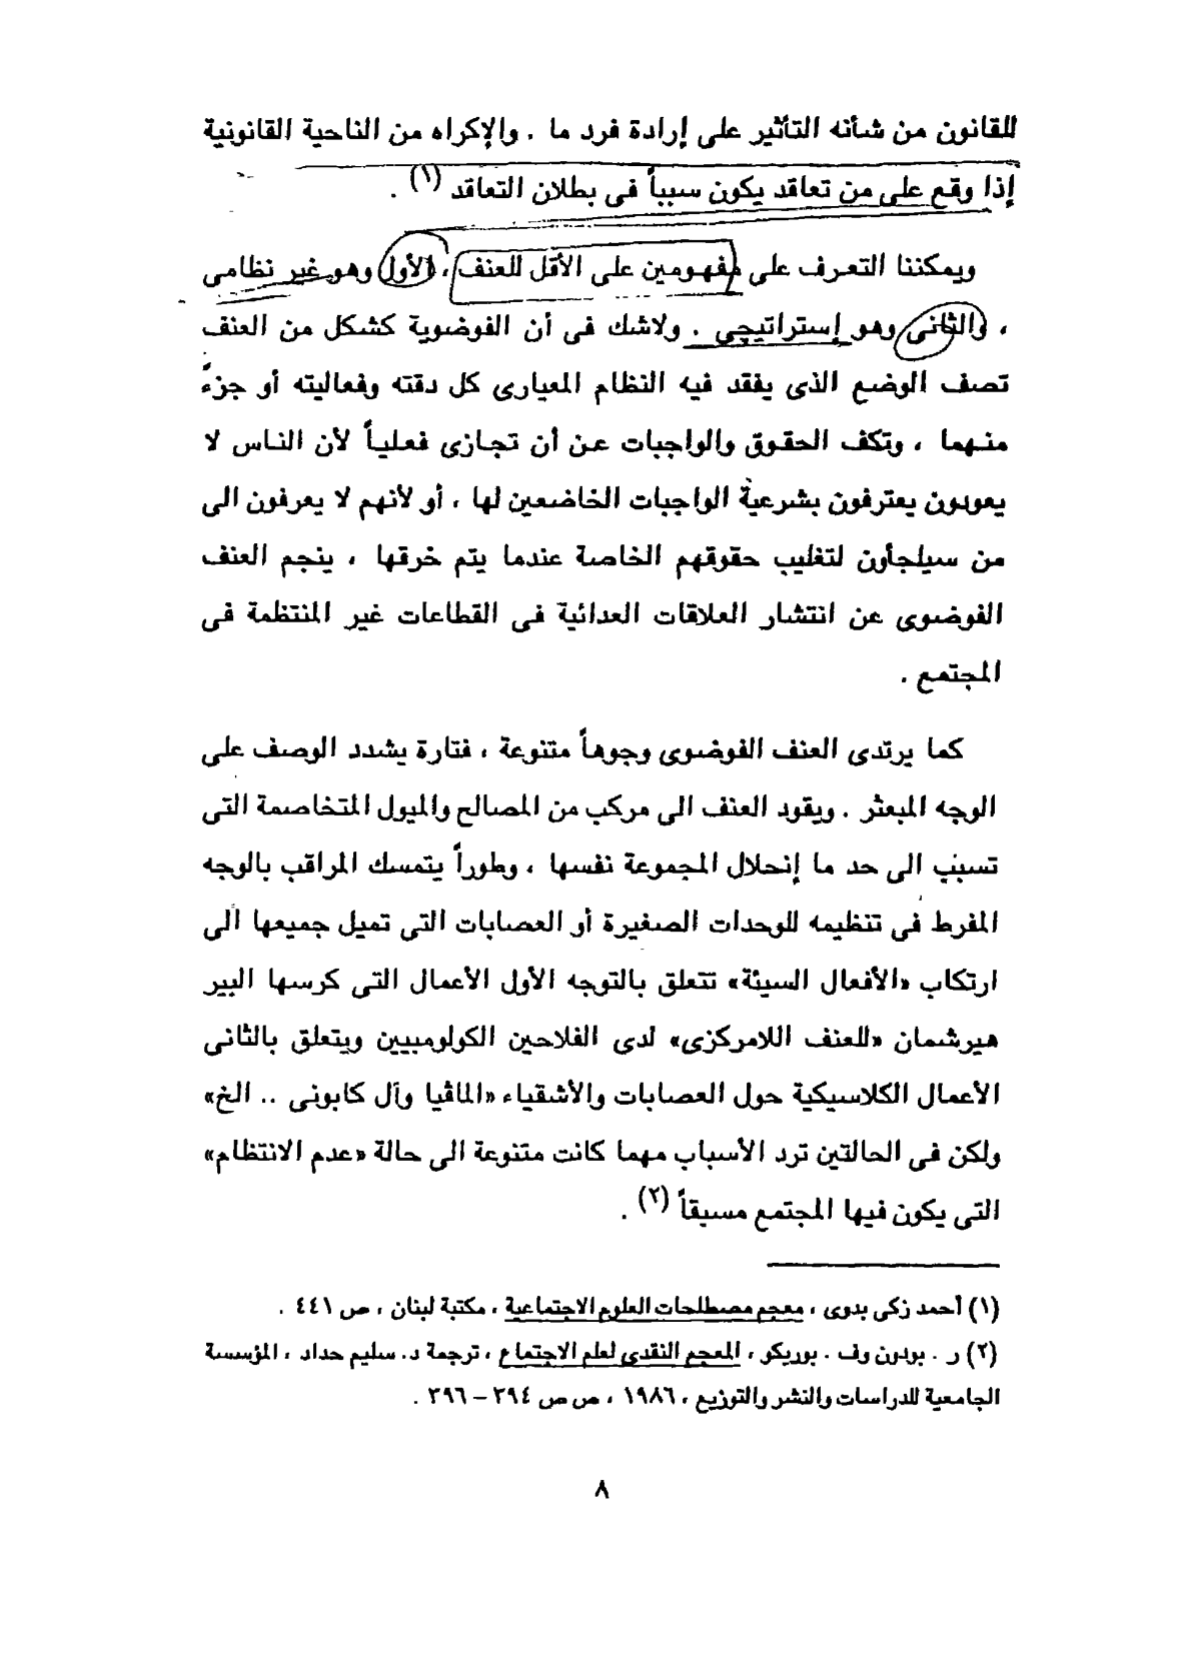 للقانون من شأنه التأثير على إرادة فرد ما . والإكراه من الناحية القانونية
إذا وقع على من تعاقد يكون سبباً فى بطلان التعاقد (١) .
ويمكننا التعرف على مفهومين على الأقل للعنف ، الأول وهو غير نظامى
، والثانى وهو إستراتيجى . ولاشك فى أن الفوضوية كشكل من العنف
تصف الوضع الذى يفقد فيه النظام المعيارى كل دقته وفعاليته أو جزءً
منهما ، وتكف الحقوق والواجبات عن أن تجازى فعلياً لأن الناس لا
يعودون يعترفون بشرعية الواجبات الخاضعين لها ، أو لأنهم لا يعرفون الى
من سيلجأون لتغليب حقوقهم الخاصة عندما يتم خرقها ، ينجم العنف
الفوضوى عن انتشار العلاقات العدائية فى القطاعات غير المنتظمة فى
المجتمع .
كما يرتدى العنف الفوضوى وجوهاً متنوعة ، فتارة يشدد الوصف على
الوجه المبعثر . ويقود العنف الى مركب من المصالح والميول المتخاصمة التى
تسبب الى حد ما إنحلال المجموعة نفسها ، وطوراً يتمسك المراقب بالوجه
المفرط فى تنظيمه للوحدات الصغيرة أو العصابات التى تميل جميعها الى
ارتكاب «الأفعال السيئة» تتعلق بالتوجه الأول الأعمال التى كرسها البير
هيرشمان «للعنف اللامركزى» لدى الفلاحين الكولومبيين ويتعلق بالثانى
الأعمال الكلاسيكية حول العصابات والأشقياء «المافيا وآل كابونى .. الخ»
ولكن فى الحالتين ترد الأسباب مهما كانت متنوعة الى حالة «عدم الانتظام»
التى يكون فيها المجتمع مسبقاً (٢) .
(١) أحمد زكى بدوى ، معجم مصطلحات العلوم الاجتماعية ، مكتبة لبنان ، ص ٤٤١ .
(٢) ر . بودون وف . بوريكو ، المعجم النقدى لعلم الاجتماع ، ترجمة د. سليم حداد ، المؤسسة
الجامعية للدراسات والنشر والتوزيع ، ١٩٨٦ ، ص ص ٣٩٤ – ٣٩٦ .
٨